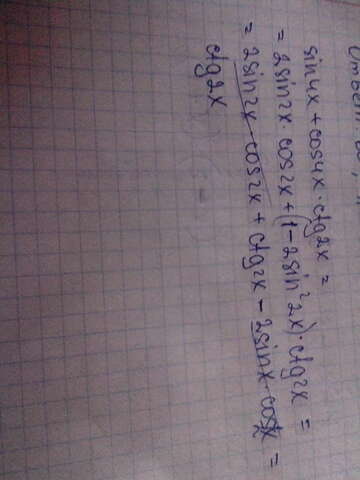 sin4x + cos4x · ctg2x =
= 2sin2x · cos2x + (1 - 2sin²2x) · ctg2x =
= 2sin2x · cos2x + ctg2x - 2sinx · cos2x =
ctg2x